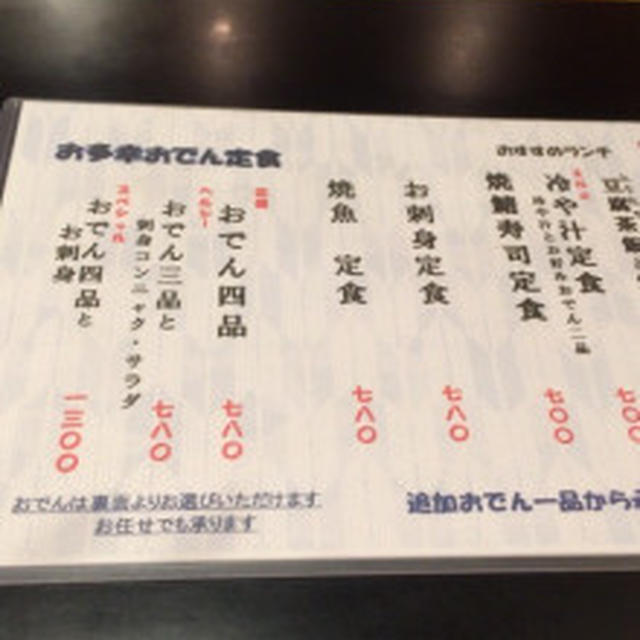 おすすめランチ
豆腐茶飯
冷や汁定食
冷や汁とお好みおでん二品
七〇〇
焼鯖寿司定食
お刺身定食
七八〇
焼魚 定食
七八〇
お多幸おでん定食
おでん四品
七八〇
ヘルシー
おでん三品と
刺身コンニャク・サラダ
七八〇
スペシャル
おでん四品と
お刺身
一三〇〇
おでんは裏面よりお選びいただけます
お任せでも承ります
追加おでん一品から